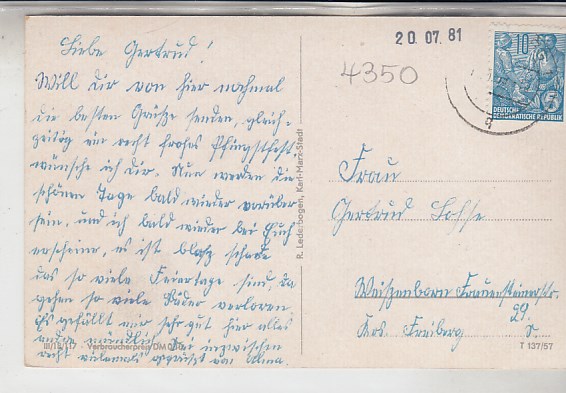 Liebe Gertrud!
Will dir von hier nochmal
die besten Grüße senden, gleich-
zeitig ein recht frohes Pfingstfest,
wünsche ich dir. Nun werden die
schönen Tage bald wieder vorüber
sein, und ich bald wieder bei Euch
erscheine, es ist bloß schade
das so viele Feiertage sind, da
gehen so viele Bäder verloren
Es gefällt mir sehr gut hier alles
andre mündlich. Sei inzwischen
recht vielemals gegrüßt von
III/18/117 Verbraucherpreis DM
R. Lederbogen, Karl-Marx-Stadt
20.07.81
4350
10
5
DEUTSCHE
DEMOKRATISCHE REPUBLIK
Frau
Gertrud Lohse
Weißenborn Frauensteinerstr.
29.
Krs. Freiberg
T 137/57